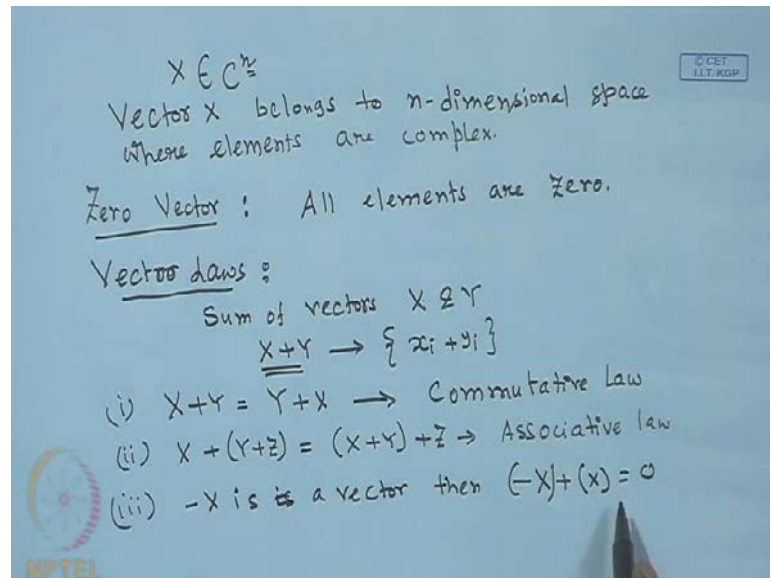 X ∈ Cⁿ
© CET
I.I.T. KGP
Vector X belongs to n-dimensional space
where elements are complex.
Zero Vector : All elements are zero.
Vector Laws :
Sum of vectors X & Y
X+Y → { xi + yi }
(i) X+Y = Y+X → Commutative Law
(ii) X + (Y+Z) = (X+Y) + Z → Associative law
(iii) -X is is a vector then (-X)+(x) = 0
NPTEL